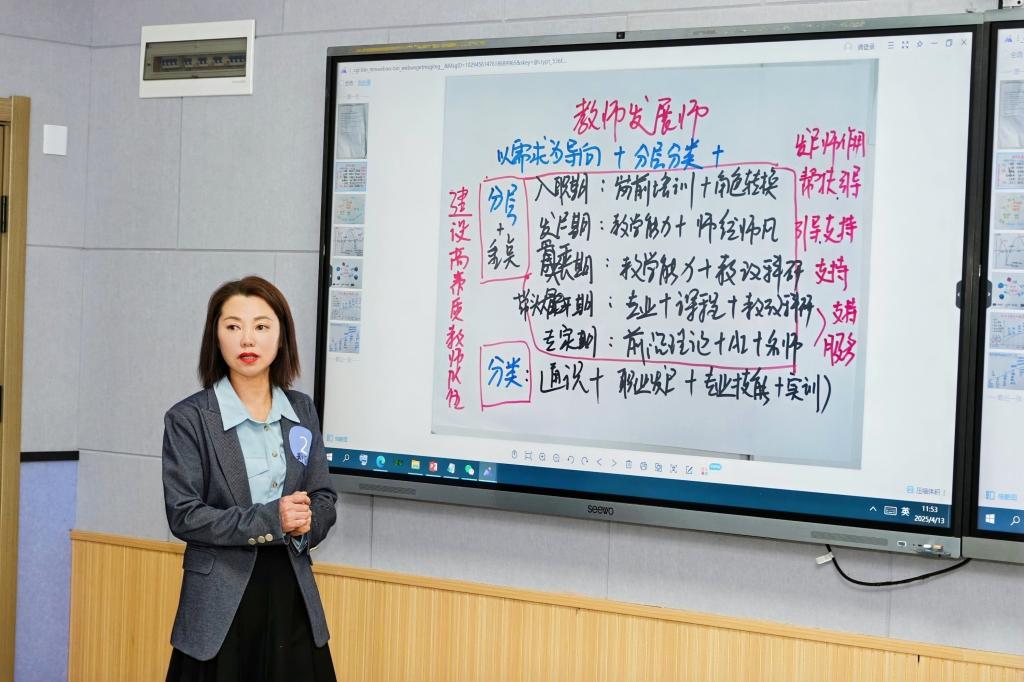 教师发展师
以需求为导向 + 分层分类 +
建设高素质教师队伍
分层
+
入职期：岗前培训+角色转换
发展期：教学能力+师经师风
教学能力+教改科研
期：专业+课程+教改科研
期：前沿理论+AI+名师
分类：(通识+ 职业发展 + 专业技能+实训)
发展师作用
帮扶引导
引导支持
支持
支持
服务
请登录
缩略图
压缩体积
英
11:53
2025/4/13
seewo
2